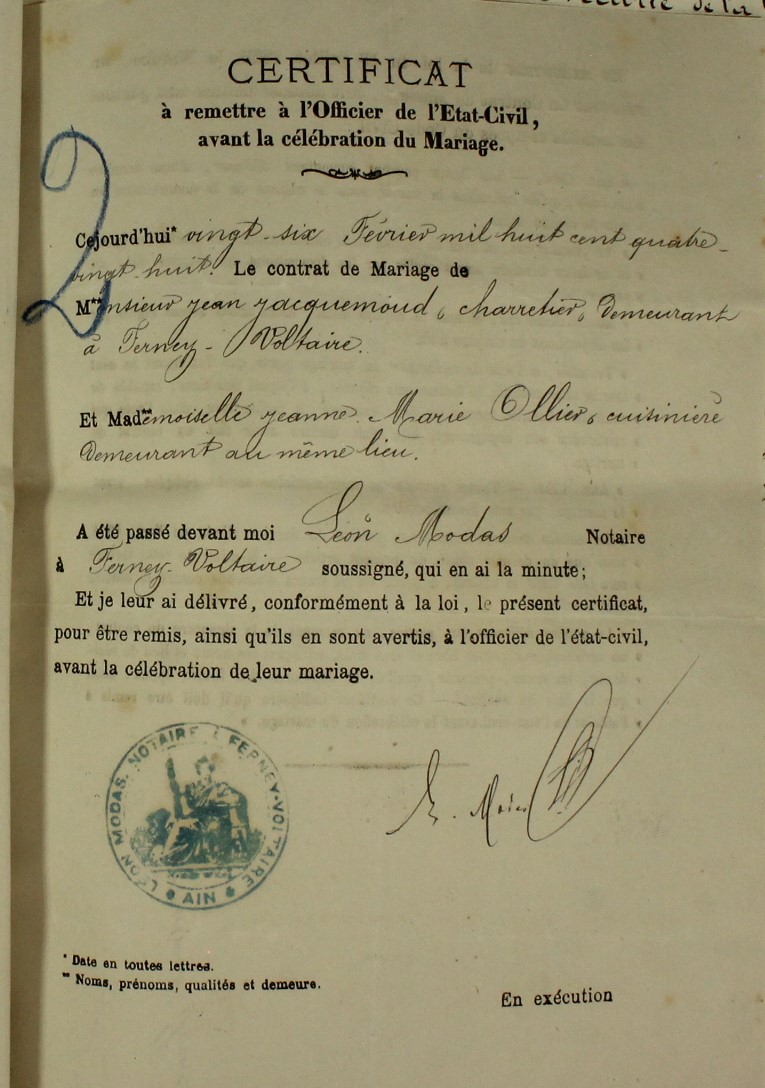 de la
CERTIFICAT
à remettre à l'Officier de l'Etat-Civil,
avant la célébration du Mariage.
2
Cejourd'hui* vingt-six Février mil huit cent quatre-
vingt-huit. Le contrat de Mariage de
M**onsieur Jean Jacquemoud, charretier, demeurant
à Ferney-Voltaire.
Et Mad**emoiselle Jeanne Marie Ollier, cuisinière
demeurant au même lieu.
A été passé devant moi Léon Modas Notaire
à Ferney-Voltaire soussigné, qui en ai la minute;
Et je leur ai délivré, conformément à la loi, le présent certificat,
pour être remis, ainsi qu'ils en sont avertis, à l'officier de l'état-civil,
avant la célébration de leur mariage.
LÉON MODAS, NOTAIRE À FERNEY-VOLTAIRE
AIN
L. Modas
* Date en toutes lettres.
** Noms, prénoms, qualités et demeure.
En exécution